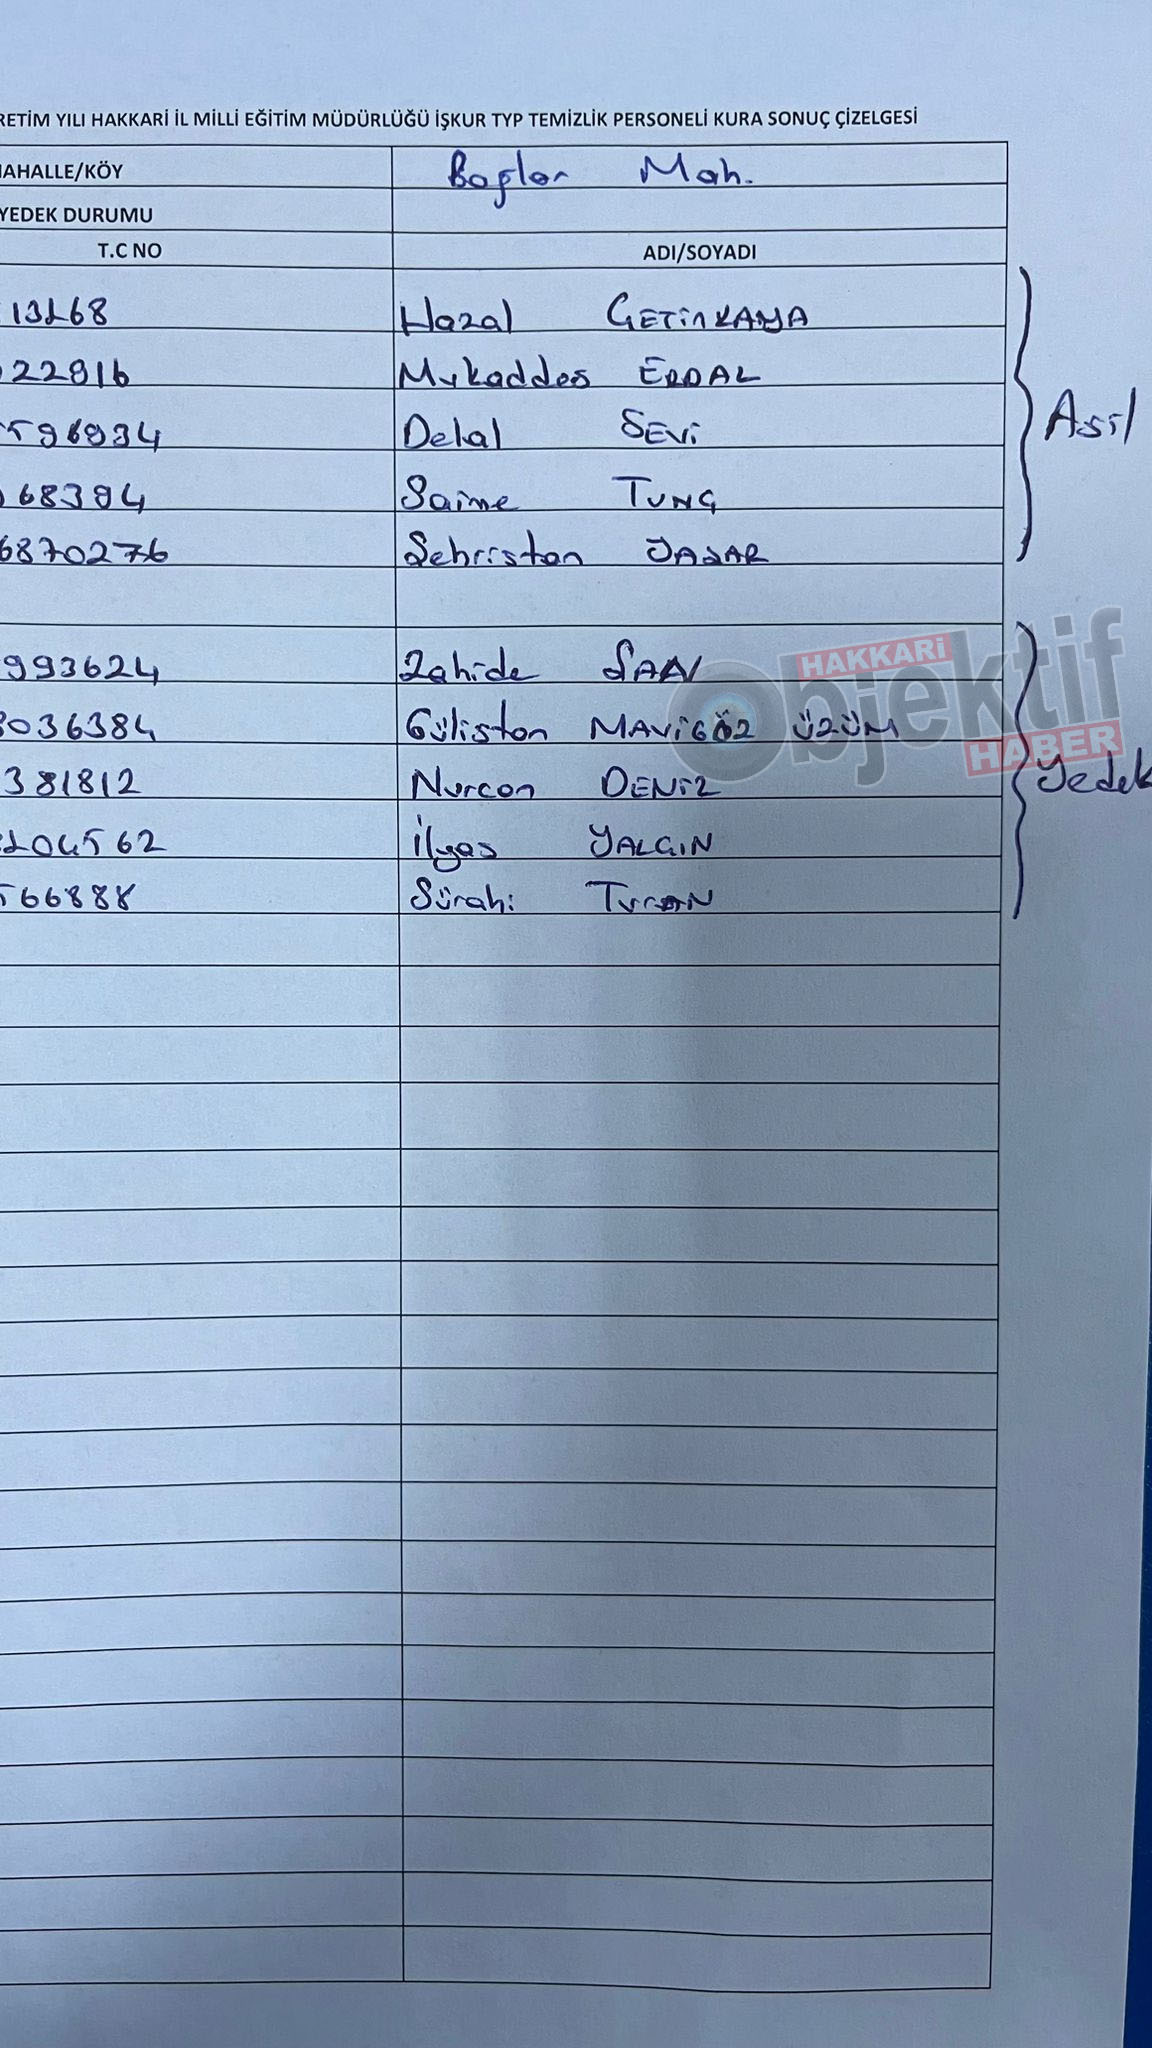 RETİM YILI HAKKARİ İL MİLLİ EĞİTİM MÜDÜRLÜĞÜ İŞKUR TYP TEMİZLİK PERSONELİ KURA SONUÇ ÇİZELGESİ
MAHALLE/KÖY Bağlar Mah.
YEDEK DURUMU
T.C NO ADI/SOYADI
13268 Hazal ÇETİNKAYA
22816 Mukaddes ERDAL
596934 Delal SEVİ
68394 Saime TUNÇ
6870276 Şehristan YAŞAR
Asil
993624 Zahide
8036384 Gülistan MAVİGÖZ ÜZÜM
381812 Nurcan DENİZ
204562 İlyas YALÇIN
566888 Sürahi TURAN
Yedek
HAKKARİ
Objektif
HABER